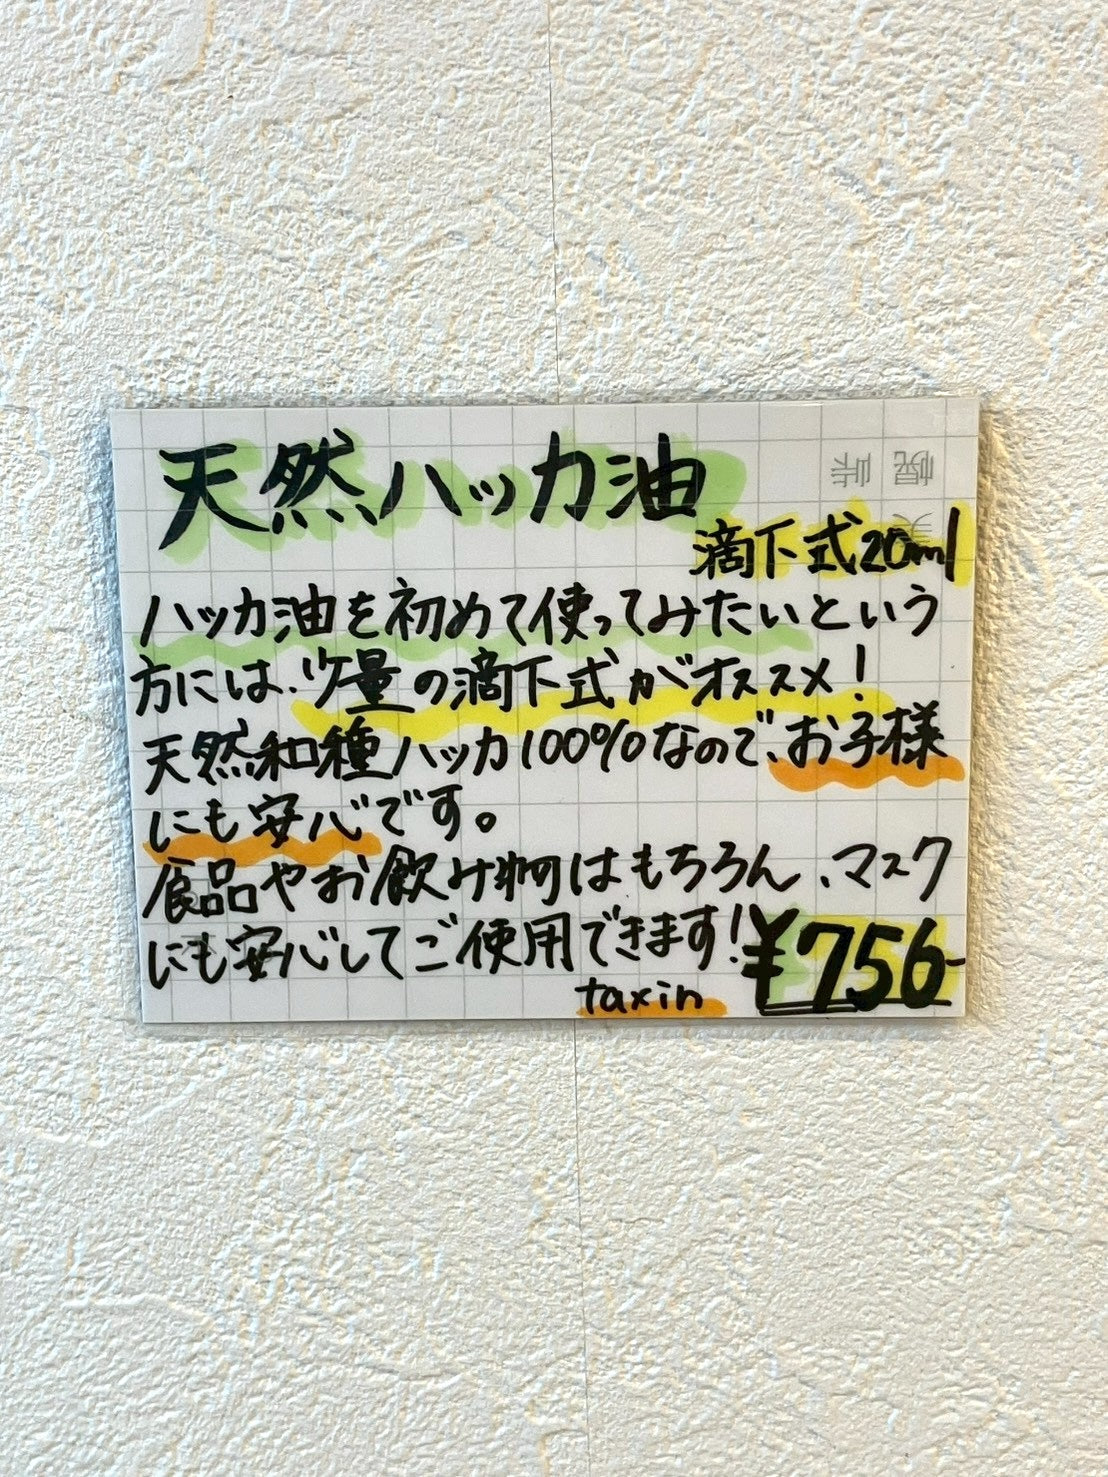 天然ハッカ油
滴下式20ml
ハッカ油を初めて使ってみたいという
方には、少量の滴下式がオススメ!
天然和種ハッカ100%なので、お子様
にも安心です。
食品やお飲み物はもちろん、マスク
にも安心してご使用できます!
¥756-
taxin